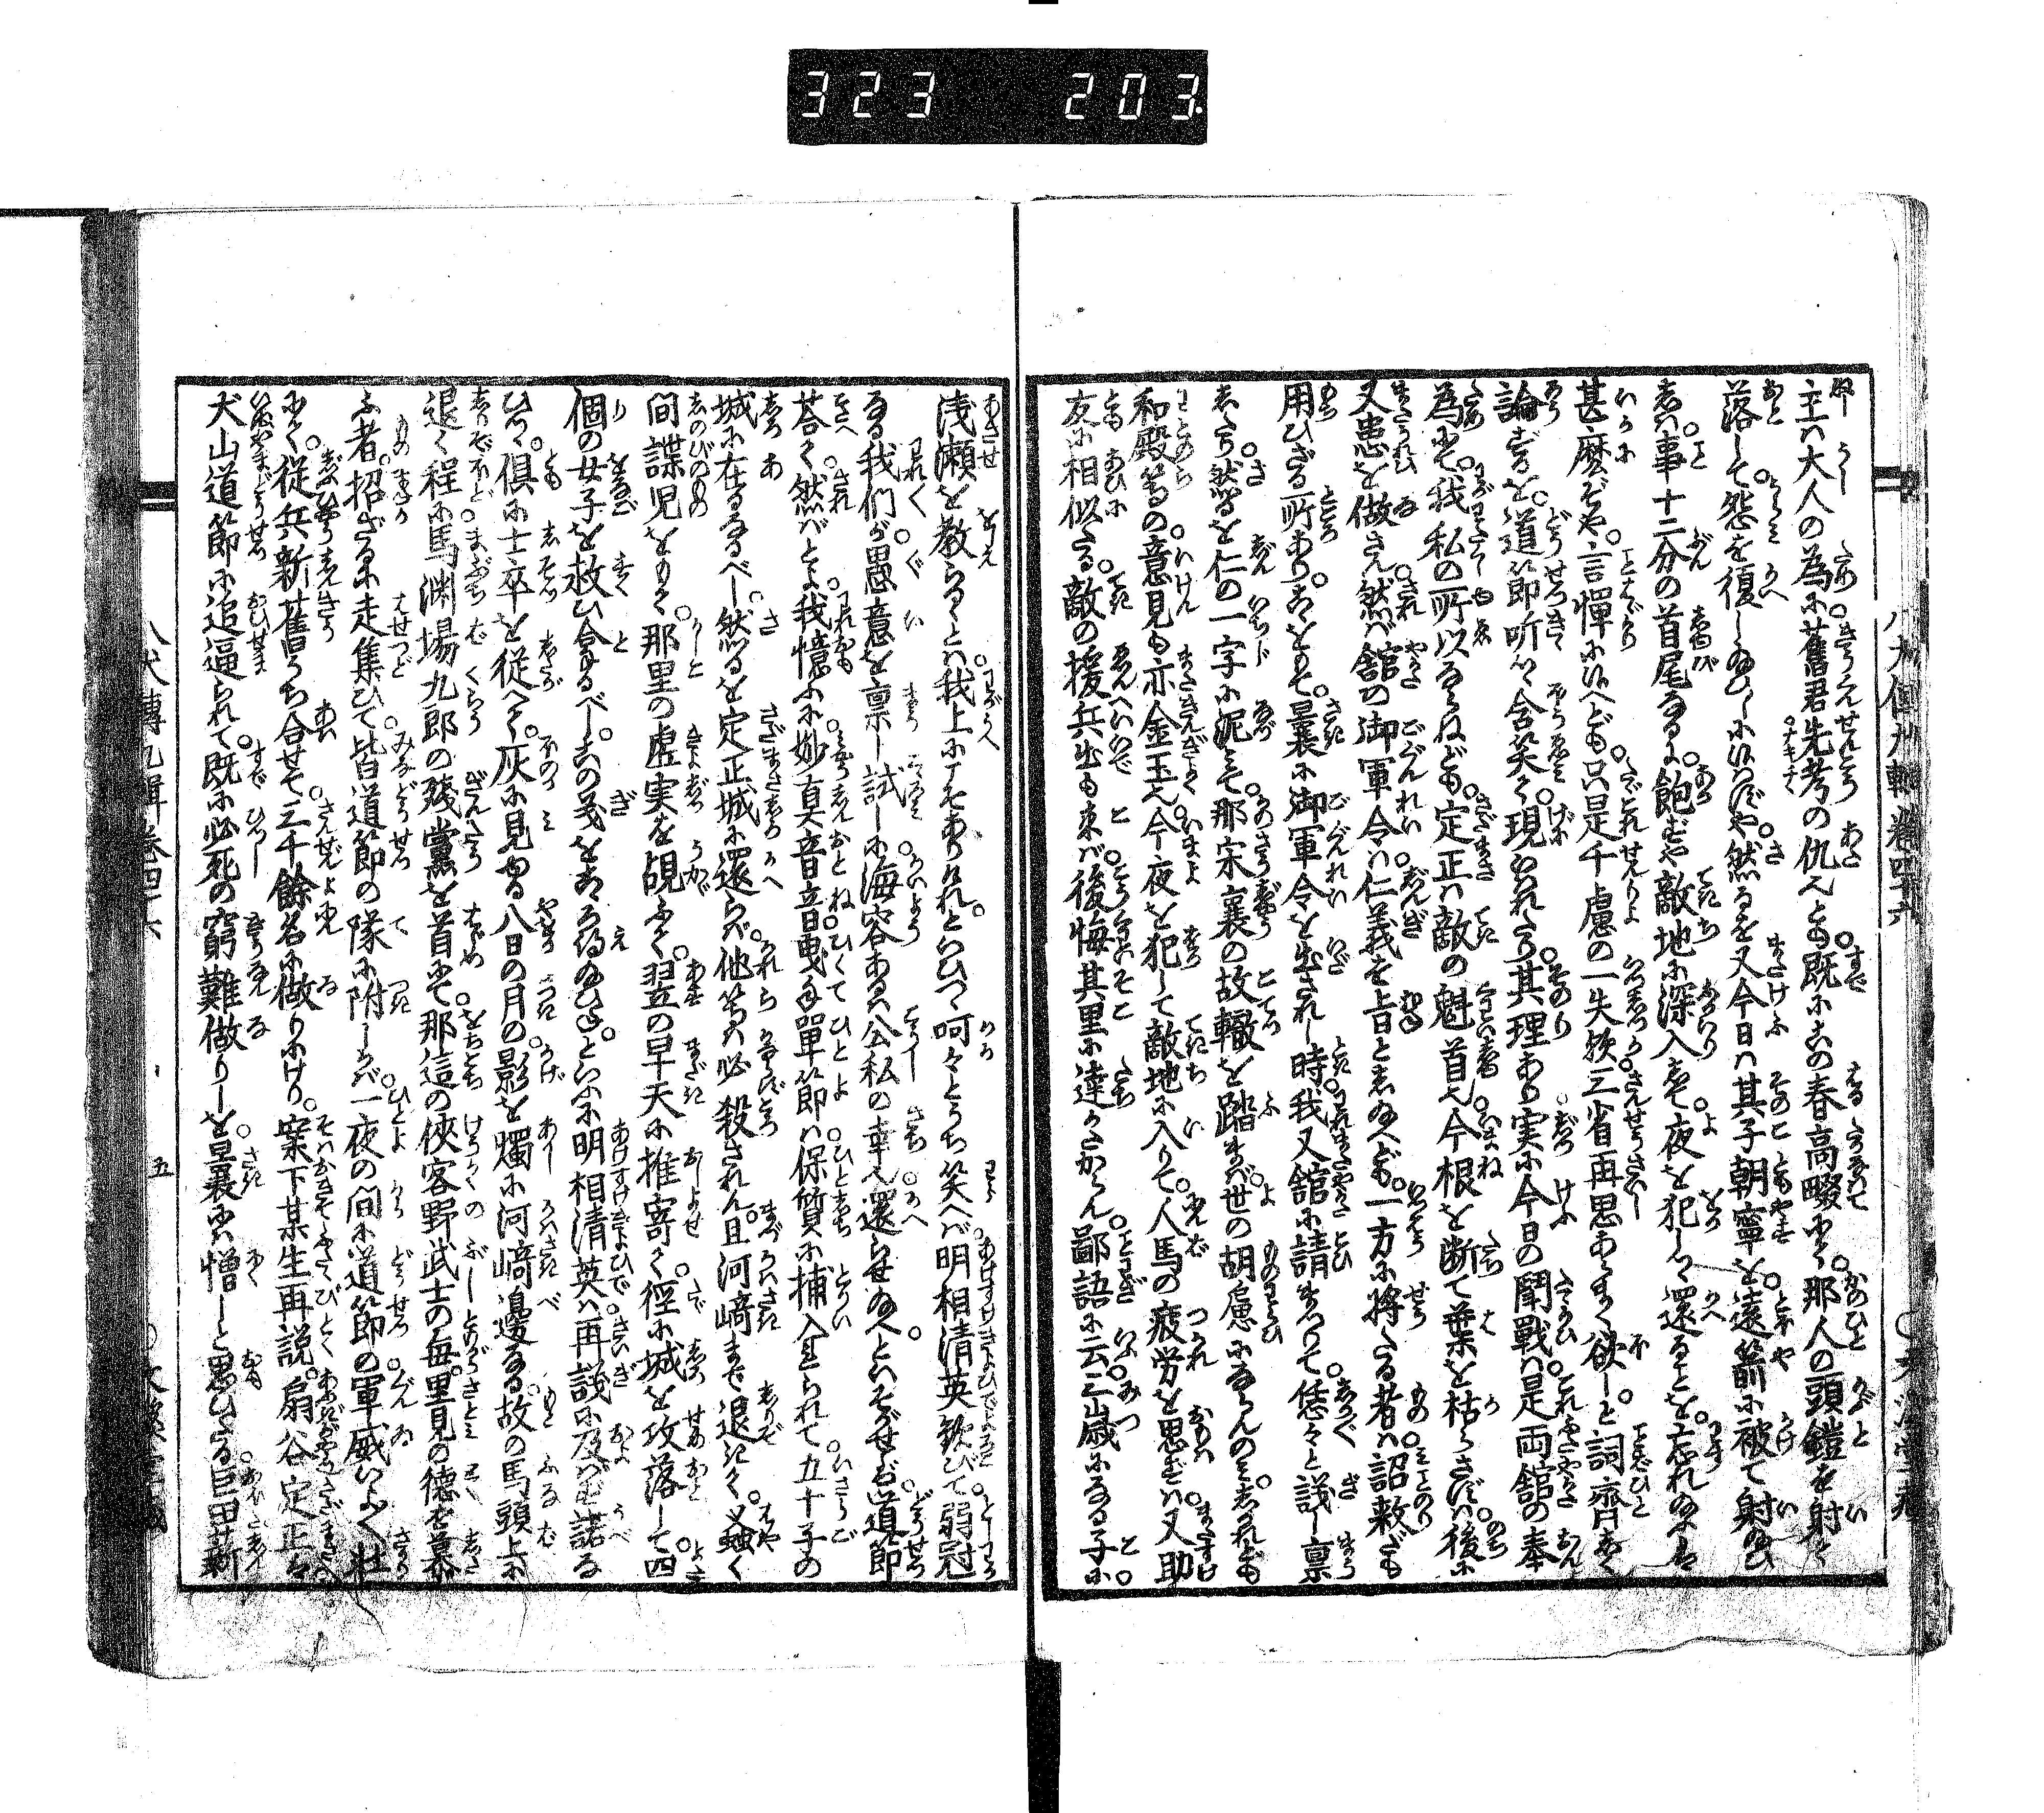 323 203
主は大人の為に舊君先考の仇人とも既にこの春高畷にて那人の頭鎧を射て
落して怨を復し給ひしに候はずや然るを又今日は其子朝寧を遠箭に被て射給ひ
しは事十二分の首尾なるに飽ずや敵地に深入して夜を犯しく還るとを忘れ給ふは
甚麼ぞや言憚に候へども只是千慮の一失歟三省再思あらまく欲しと詞齊しく
論ずるを道節听つゝ含笑て現いはれたり其理あり実に今日の鬪戰は是両舘の奉
為にて我私の所以ならねども定正は敵の魁首也今根を断て葉を枯らさずは後に
又患を做さん然ば舘の御軍令は仁義を旨としぬへども一方に將たる者は詔敕だも
用ひざる所ありこをもて曩に御軍令を出されし時我又舘に請まつりて恁々と議し禀
したり然るを仁の一字に泥みて那宋襄の故轍を踏まば世の胡慮にならんのみしかれども
和殿等の意見も亦金玉也今夜を犯して敵地に入りて人馬の疲労を思ずは又助
友に相似たる敵の援兵出も来ば後悔其里に達かたからん鄙語に云三歳になる子に
浅瀬を教らるゝとは我上にこそありけれといひつゝ呵々とうち笑へば明相清英歓びて弱冠
なる我們が愚意を禀し試しに海容あるは公私の幸也還らせ給へといそがせば道節
荅て然ばとよ我憶ふに妙真音音曳手單節は保質に捕入られて五十子の
城に在るなるべし然るを定正城に還らば他等は必殺されん且河﨑まで退きて蚤く
間諜児をもて那里の虚実を覘ふて翌の早天に推寄て徑に城を攻落して四
個の女子を救ひ合るべしこの義をこゝろ得給ひねといふに明相清英は再議に及ばず諾な
ひつゝ倶に士卒を從へて灰に見ゆる八日の月の影を燭に河﨑邊なる故の馬頭上に
退く程に馬渊場九郎の殘黨を首にて那這の俠客野武士の毎里見の德を慕
ふ者招ざるに走集ひて皆道節の隊に附しかば一夜の間に道節の軍威いよゝ壮
にて從兵新舊うち合せて三千餘名に做りにけり案下某生再説扇谷定正は
犬山道節に追逼られて既に必死の窮難做りしを曩には憎しと思ひたる巨田薪